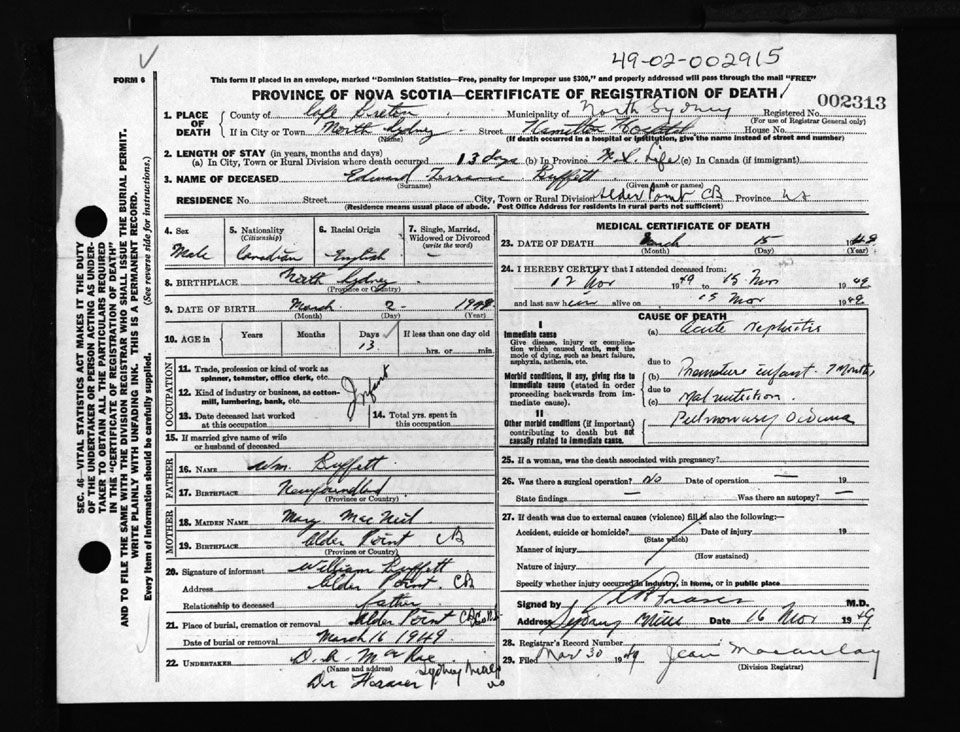 49-02-002915
FORM 6
This form if placed in an envelope, marked "Dominion Statistics—Free, penalty for improper use $300," and properly addressed will pass through the mail "FREE"
PROVINCE OF NOVA SCOTIA—CERTIFICATE OF REGISTRATION OF DEATH
002313
1. PLACE OF DEATH
County of Cape Breton Municipality of North Sydney Registered No.
(For use of Registrar General only)
If in City or Town North Sydney Street Hamilton Hospital House No.
(Name) (If death occurred in a hospital or institution, give the name instead of street and number)
2. LENGTH OF STAY (in years, months and days)
(a) In City, Town or Rural Division where death occurred 13 days (b) In Province N.S. Life (c) In Canada (if immigrant)
3. NAME OF DECEASED Edward Buffett
(Surname) (Given name or names)
RESIDENCE No. Street City, Town or Rural Division Alder Point CB Province NS
(Residence means usual place of abode. Post Office Address for residents in rural parts not sufficient)
4. Sex
Male
5. Nationality
(Citizenship)
Canadian
6. Racial Origin
English
7. Single, Married, Widowed or Divorced
(write the word)
—
8. BIRTHPLACE North Sydney
(Province or Country)
9. DATE OF BIRTH March 2 - 1949
(Month) (Day) (Year)
10. AGE in Years Months Days If less than one day old
13 hrs. or min.
OCCUPATION
11. Trade, profession or kind of work as spinner, teamster, office clerk, etc.
Infant
12. Kind of industry or business, as cotton-mill, lumbering, bank, etc.
13. Date deceased last worked at this occupation
14. Total yrs. spent in this occupation
15. If married give name of wife or husband of deceased
FATHER
16. NAME Wm. Buffett
17. BIRTHPLACE Newfoundland
(Province or Country)
MOTHER
18. MAIDEN NAME Mary MacNeil
19. BIRTHPLACE Alder Point CB
(Province or Country)
20. Signature of informant William Buffett
Address Alder Point. CB
Relationship to deceased father
21. Place of burial, cremation or removal Alder Point CB
Date of burial or removal March 16 1949
22. UNDERTAKER D. A. MacRae
(Name and address) Sydney Mines
NS
MEDICAL CERTIFICATE OF DEATH
23. DATE OF DEATH March 15 1949
(Month) (Day) (Year)
24. I HEREBY CERTIFY that I attended deceased from:
12 Mar 1949 to 15 Mar 1949
and last saw alive on 15 Mar 1949
CAUSE OF DEATH
I
Immediate cause
Give disease, injury or complication which caused death, not the mode of dying, such as heart failure, asphyxia, asthenia, etc.
(a) Acute Nephritis
due to
Morbid conditions, if any, giving rise to immediate cause (stated in order proceeding backwards from immediate cause).
(b) Premature infant - 7 months
due to
(c) Malnutrition
II
Other morbid conditions (if important) contributing to death but not causally related to immediate cause.
Pulmonary
25. If a woman, was the death associated with pregnancy?
26. Was there a surgical operation? No Date of operation — 19
State findings — Was there an autopsy? —
27. If death was due to external causes (violence) fill in also the following:—
Accident, suicide or homicide? Date of injury 19
(State which)
Manner of injury
(How sustained)
Nature of injury
Specify whether injury occurred in industry, in home, or in public place
Signed by M.D.
Address Sydney Mines Date 16 Mar 1949
28. Registrar's Record Number
29. Filed Mar 30 1949 Jean Macaulay
(Division Registrar)
SEC. 46—VITAL STATISTICS ACT MAKES IT THE DUTY
OF THE UNDERTAKER OR PERSON ACTING AS UNDER-
TAKER TO OBTAIN ALL THE PARTICULARS REQUIRED
IN THE "CERTIFICATE OF REGISTRATION OF DEATH"
AND TO FILE THE SAME WITH THE DIVISION REGISTRAR WHO SHALL ISSUE THE BURIAL PERMIT.
WRITE PLAINLY WITH UNFADING INK. THIS IS A PERMANENT RECORD.
Every item of information should be carefully supplied. (See reverse side for instructions.)